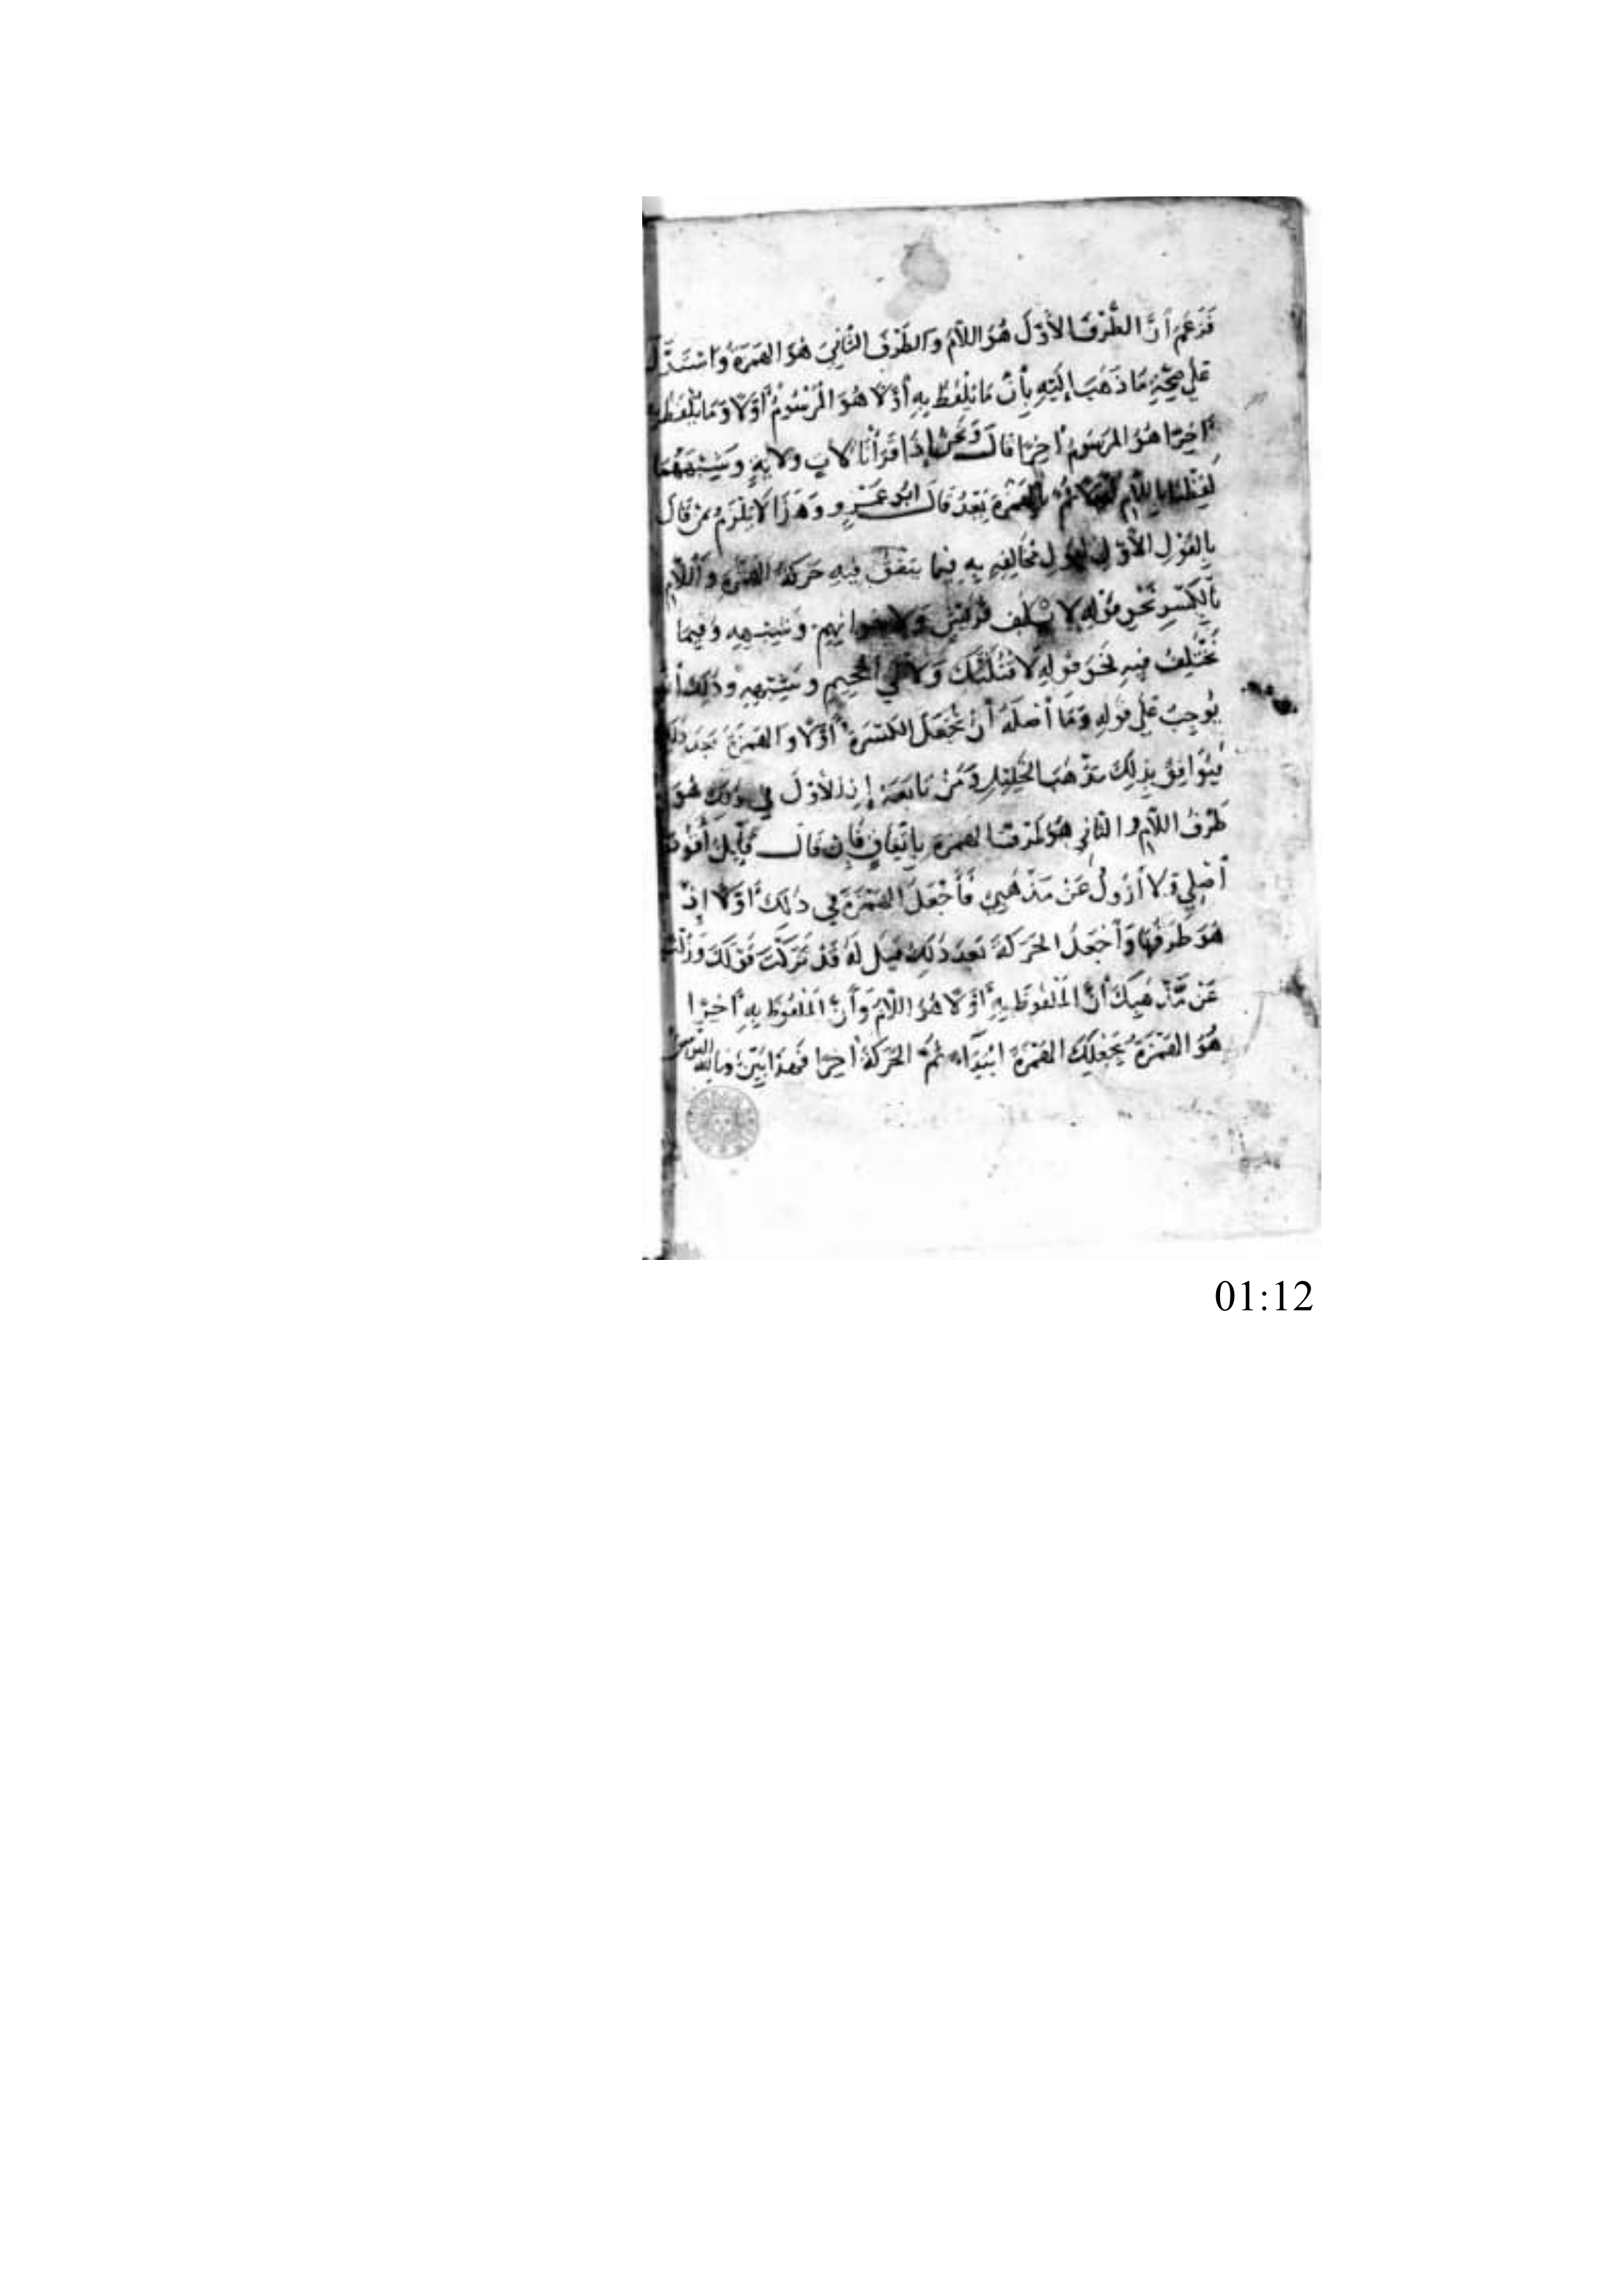 فَزَعَمَ أَنَّ الطَّرَفَ الأَوَّلَ هُوَ اللَّامُ وَالطَّرَفَ الثَّانِيَ هُوَ الهَمْزَةُ وَاسْتَدَلَّ
عَلَى صِحَّةِ مَا ذَهَبَ إِلَيْهِ بِأَنَّ مَا يُلْفَظُ بِهِ أَوَّلًا هُوَ الْمَرْسُومُ أَوَّلًا وَمَا يُلْفَظُ بِهِ
آخِرًا هُوَ المَرْسُومُ آخِرًا قَالَ وَنَحْنُ إِذَا قَرَأْنَا لَآتٍ وَلَآيَةً وَشِبْهَهُمَا
لَفَظْنَا بِاللَّامِ ثُمَّ بِالْهَمْزَةِ بَعْدُ قَالَ أَبُو عَمْرٍو وَهَذَا لَا يَلْزَمُ مَنْ قَالَ
بِالقَوْلِ الأَوَّلِ مُخَالِفِيهِ بِهِ فِيمَا يَتَّفِقُ فِيهِ حَرَكَةُ الهَمْزَةِ وَاللَّامِ
بِالكَسْرِ نَحْوِ قَوْلِهِ لِإِيلَفِ قُرَيْشٍ وَلِإِخْوَانِهِمْ وَشِبْهِهِ وَفِيمَا
تَخْتَلِفُ فِيهِ نَحْوَ قَوْلِهِ لَأَقْتُلَنَّكَ وَلَإِلَى الْجَحِيمِ وَشِبْهِهِ وَذَلِكَ أَنَّهُ
يُوجِبُ عَلَى قَوْلِهِ وَمَا أَصَّلَهُ أَنْ تُجْعَلَ الكَسْرَةُ أَوَّلًا وَالهَمْزَةُ بَعْدَ ذَلِكَ
فَيُوَافِقُ بِذَلِكَ مَذْهَبَ الخَلِيلِ وَمَنْ تَابَعَهُ إِذِ الأَوَّلُ فِي ذَلِكَ هُوَ
طَرَفُ اللَّامِ وَالثَّانِي هُوَ طَرَفُ الهَمْزَةِ بِاتِّفَاقٍ فَإِنْ قَالَ أَقُودُ
أَصْلِي وَلَا أَزُولُ عَنْ مَذْهَبِي فَأَجْعَلُ الهَمْزَةَ فِي ذَلِكَ أَوَّلًا إِذْ
هُوَ طَرَفُهَا وَأَجْعَلُ الحَرَكَةَ بَعْدَ ذَلِكَ قِيلَ لَهُ قَدْ تَرَكْتَ قَوْلَكَ وَزُلْتَ
عَنْ مَذْهَبِكَ أَنَّ المَلْفُوظَ بِهِ أَوَّلًا هُوَ اللَّامُ وَأَنَّ المَلْفُوظَ بِهِ آخِرًا
هُوَ الهَمْزَةُ بِجَعْلِكَ الهَمْزَةَ ابْتِدَاءً ثُمَّ الحَرَكَةَ آخِرًا فَهَذَا بَيِّنٌ وَبِاللَّهِ
01:12